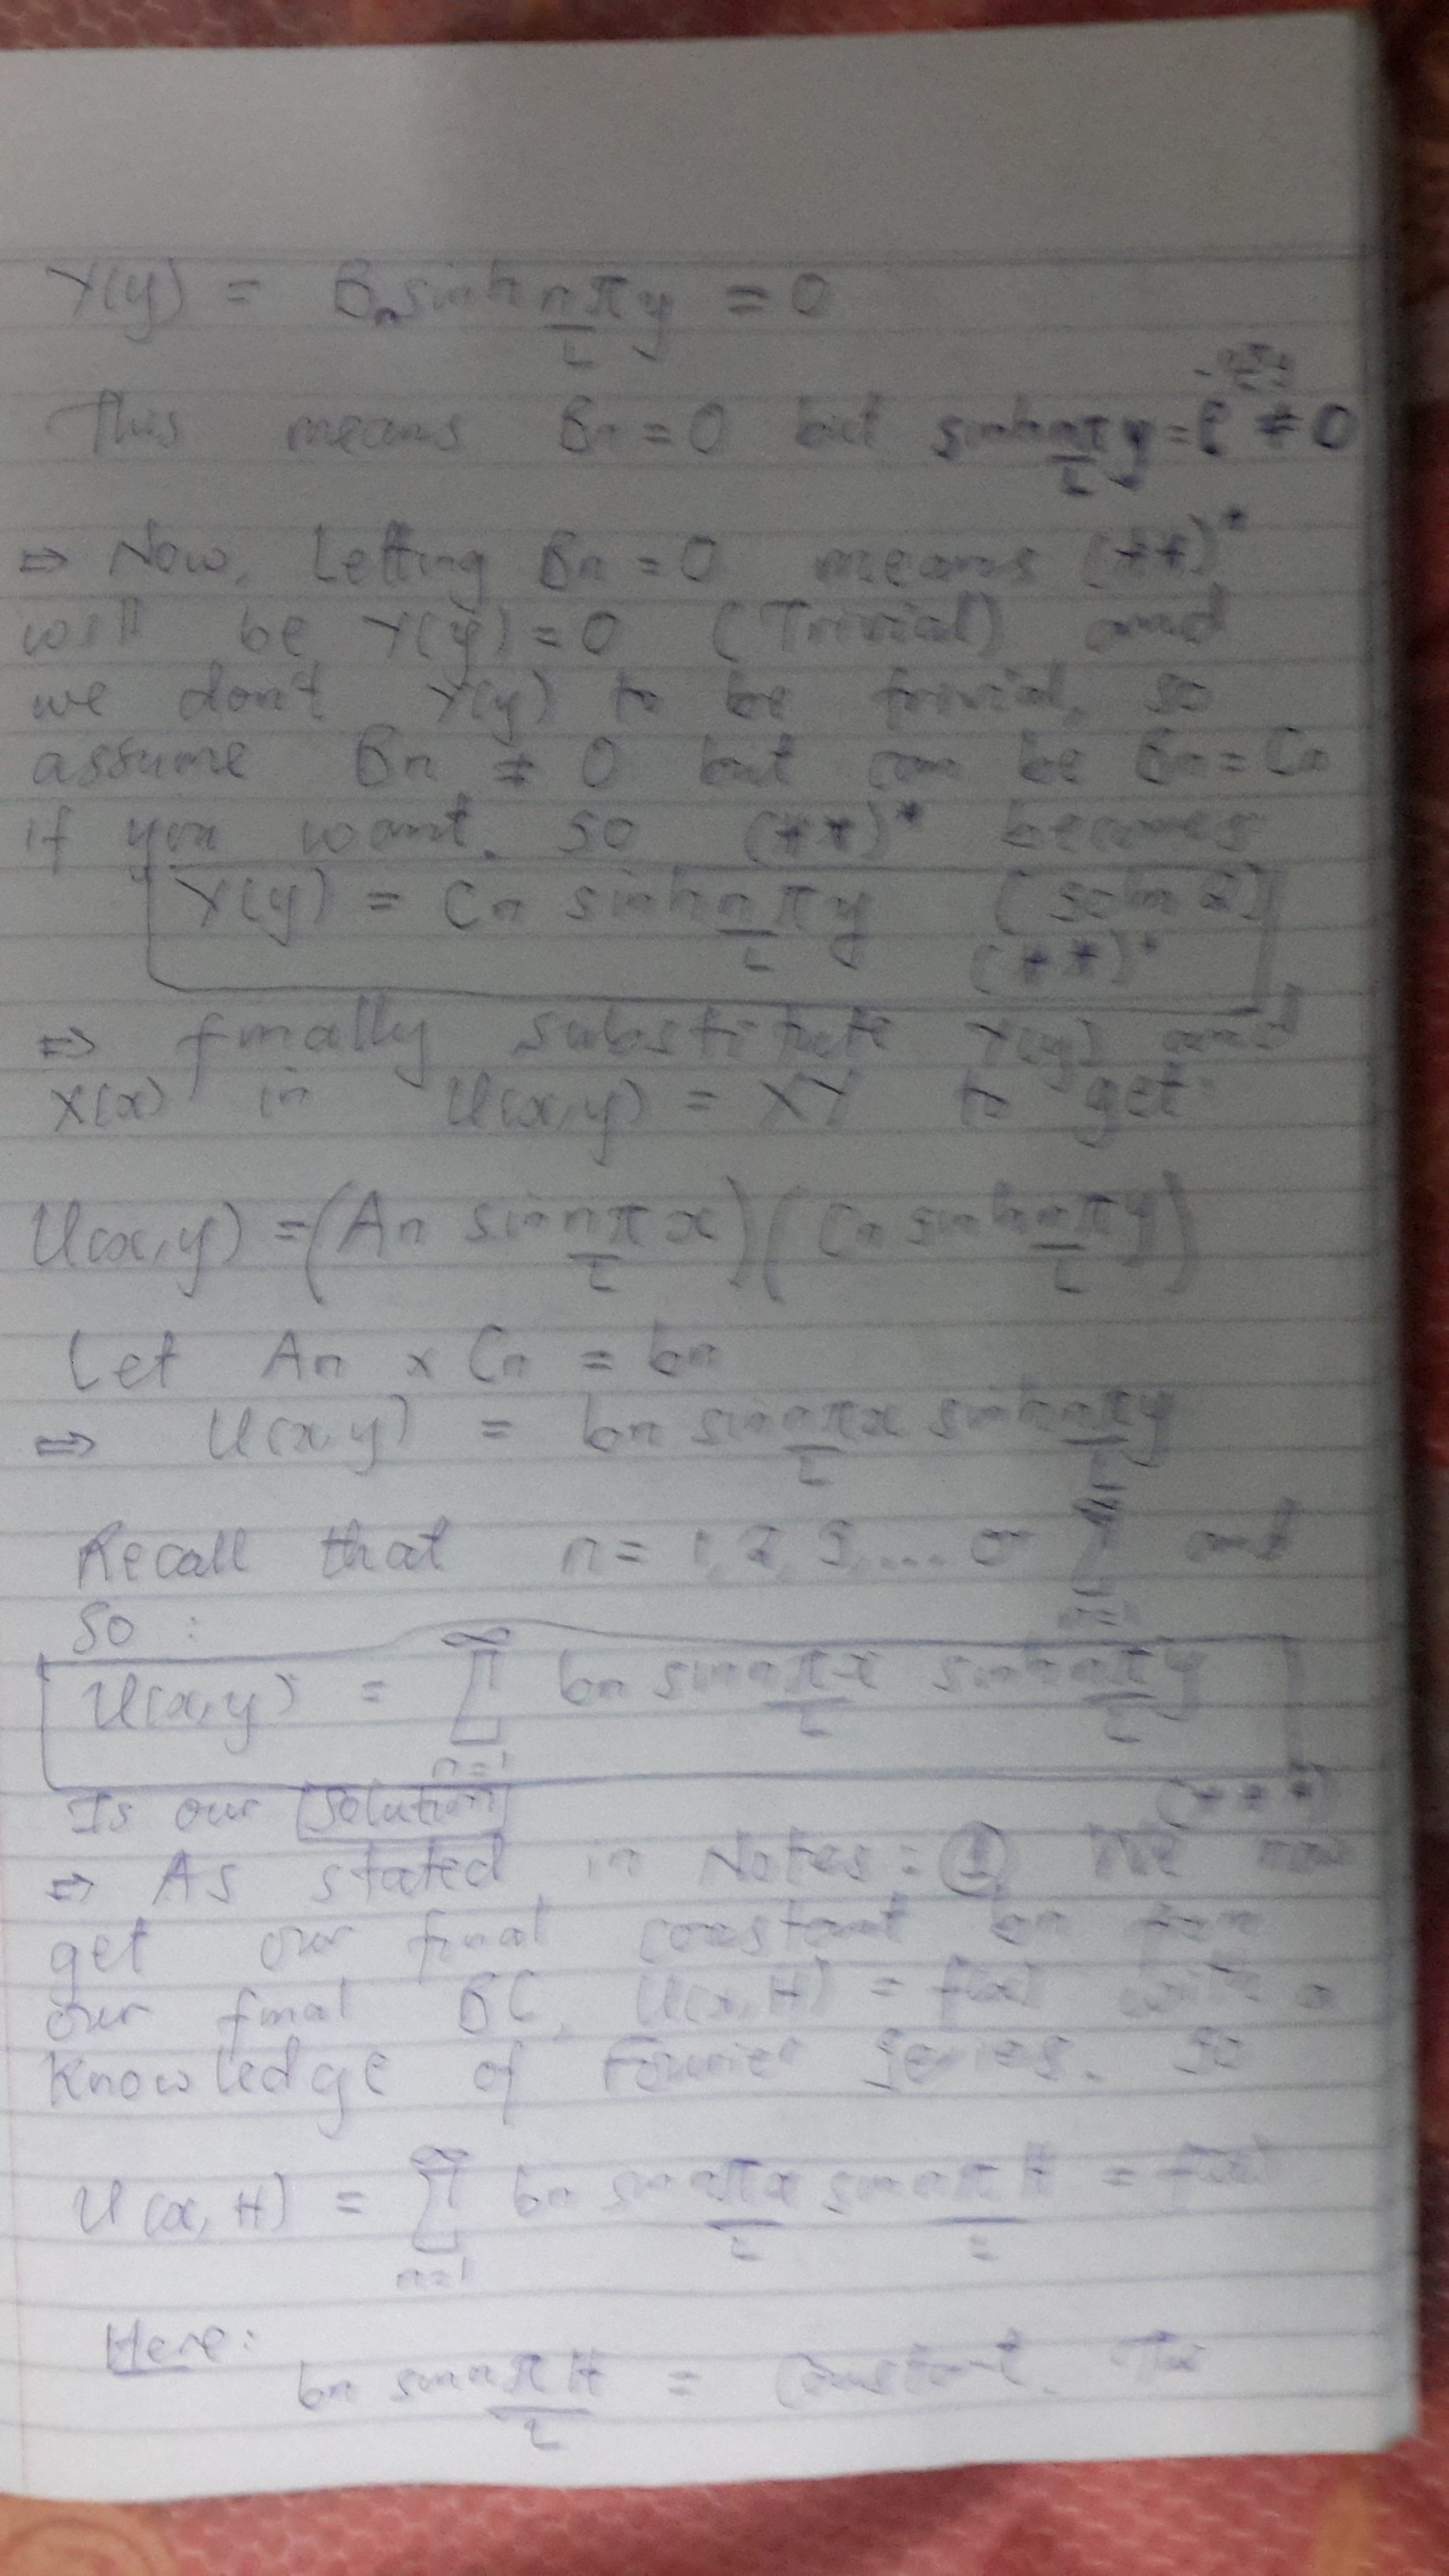 Y(y) = Bn sinh nπ/L y = 0
This means Bn = 0 but sinh nπ/L y = e ≠ 0
⇒ Now, Letting Bn = 0 means (**)*
will be Y(y) = 0 (Trivial) and
we don't Y(y) to be trivial, so
assume Bn ≠ 0 but can be Bn = Cn
if you want. so (**)* becomes
Y(y) = Cn sinh nπ/L y (soln 2)
(**)*
⇒ finally substitute Y(y) and
X(x) in U(x,y) = XY to get:
U(x,y) = (An sin nπ/L x)(Cn sinh nπ/L y)
Let An x Cn = bn
⇒ U(x,y) = bn sin nπx/L sinh nπ/L y
Recall that n = 1, 2, 3, .... or ∑ n=1 and
So:
U(x,y) = ∞∑n=1 bn sin nπx/L sinh nπ/L y
Is our solution (***)
⇒ As stated in Notes: ① We now
get our final constant bn from
our final BC, U(x,H) = f(x) with a
knowledge of Fourier Series. So
U(x,H) = ∞∑n=1 bn sin nπx/L sinh nπH/L = f(x)
Here:
bn sinh nπH/L = Constant.